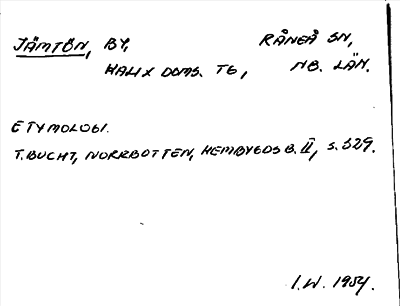 JÄMTÖN, BY, RÅNEÅ SN,
KALIX DOMS. TG, NB. LÄN.
ETYMOLOGI.
T. BUCHT, NORRBOTTEN, HEMBYGDSB. II, S. 329.
I.W. 1954.